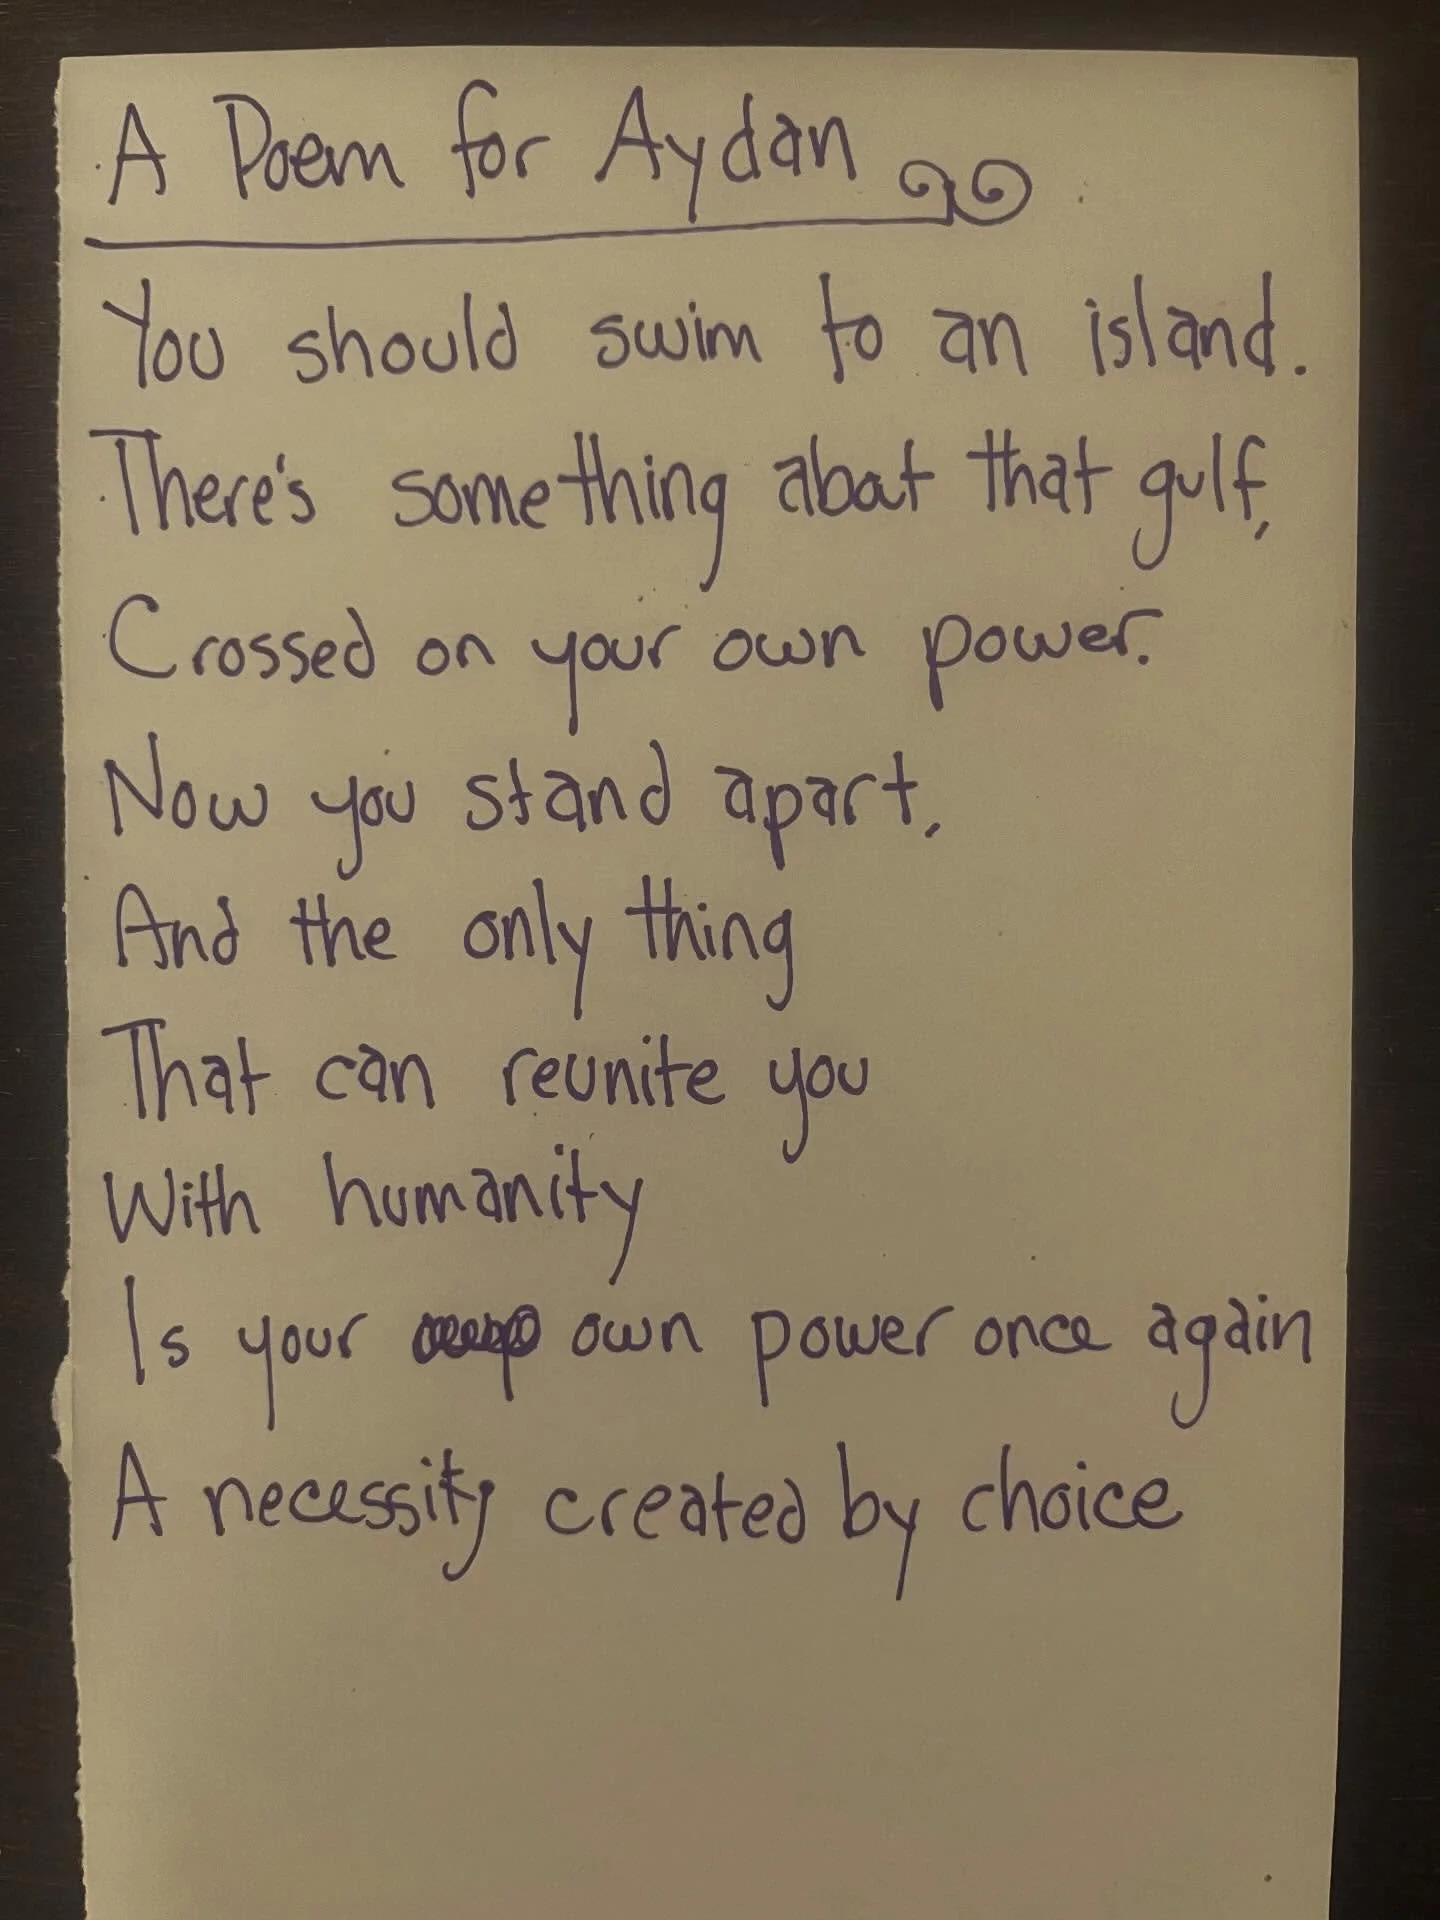 A Poem for Aydan
You should swim to an island.
There's something about that gulf,
Crossed on your own power.
Now you stand apart,
And the only thing
That can reunite you
With humanity
Is your own power once again
A necessity created by choice